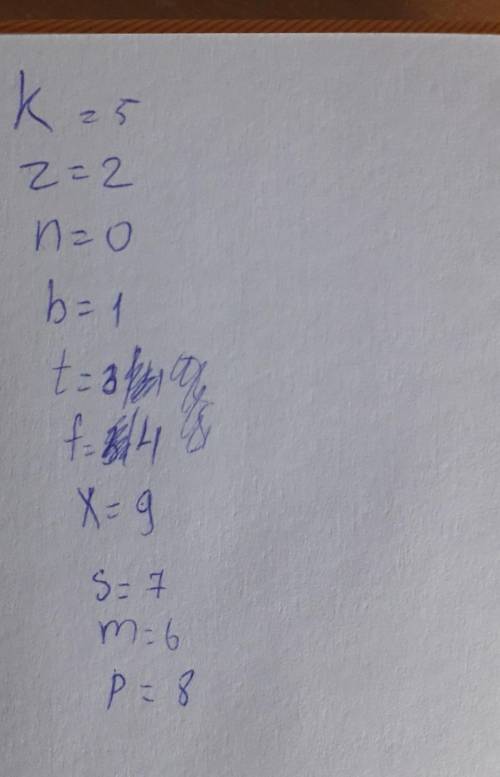 K = 5
z = 2
n = 0
b = 1
t = 3
f = 4
X = 9
S = 7
m = 6
p = 8